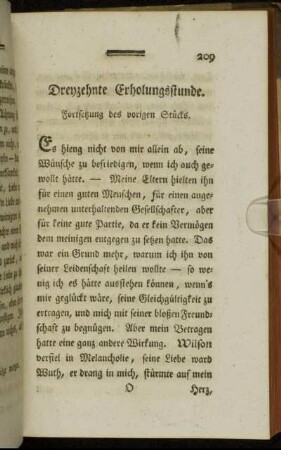 209
Dreyzehnte Erholungsstunde.
Fortsetzung des vorigen Stücks.
Es hieng nicht von mir allein ab, seine
Wünsche zu befriedigen, wenn ich auch ge-
wollt hätte. — Meine Eltern hielten ihn
für einen guten Menschen, für einen ange-
nehmen unterhaltenden Gesellschafter, aber
für keine gute Partie, da er kein Vermögen
dem meinigen entgegen zu setzen hatte. Das
war ein Grund mehr, warum ich ihn von
seiner Leidenschaft heilen wollte — so we-
nig ich es hätte ausstehen können, wenn's
mir geglückt wäre, seine Gleichgültigkeit zu
ertragen, und mich mit seiner bloßen Freund-
schaft zu begnügen. Aber mein Betragen
hatte eine ganz andere Wirkung. Wilson
verfiel in Melancholie, seine Liebe ward
Wuth, er drang in mich, stürmte auf mein
O Herz,